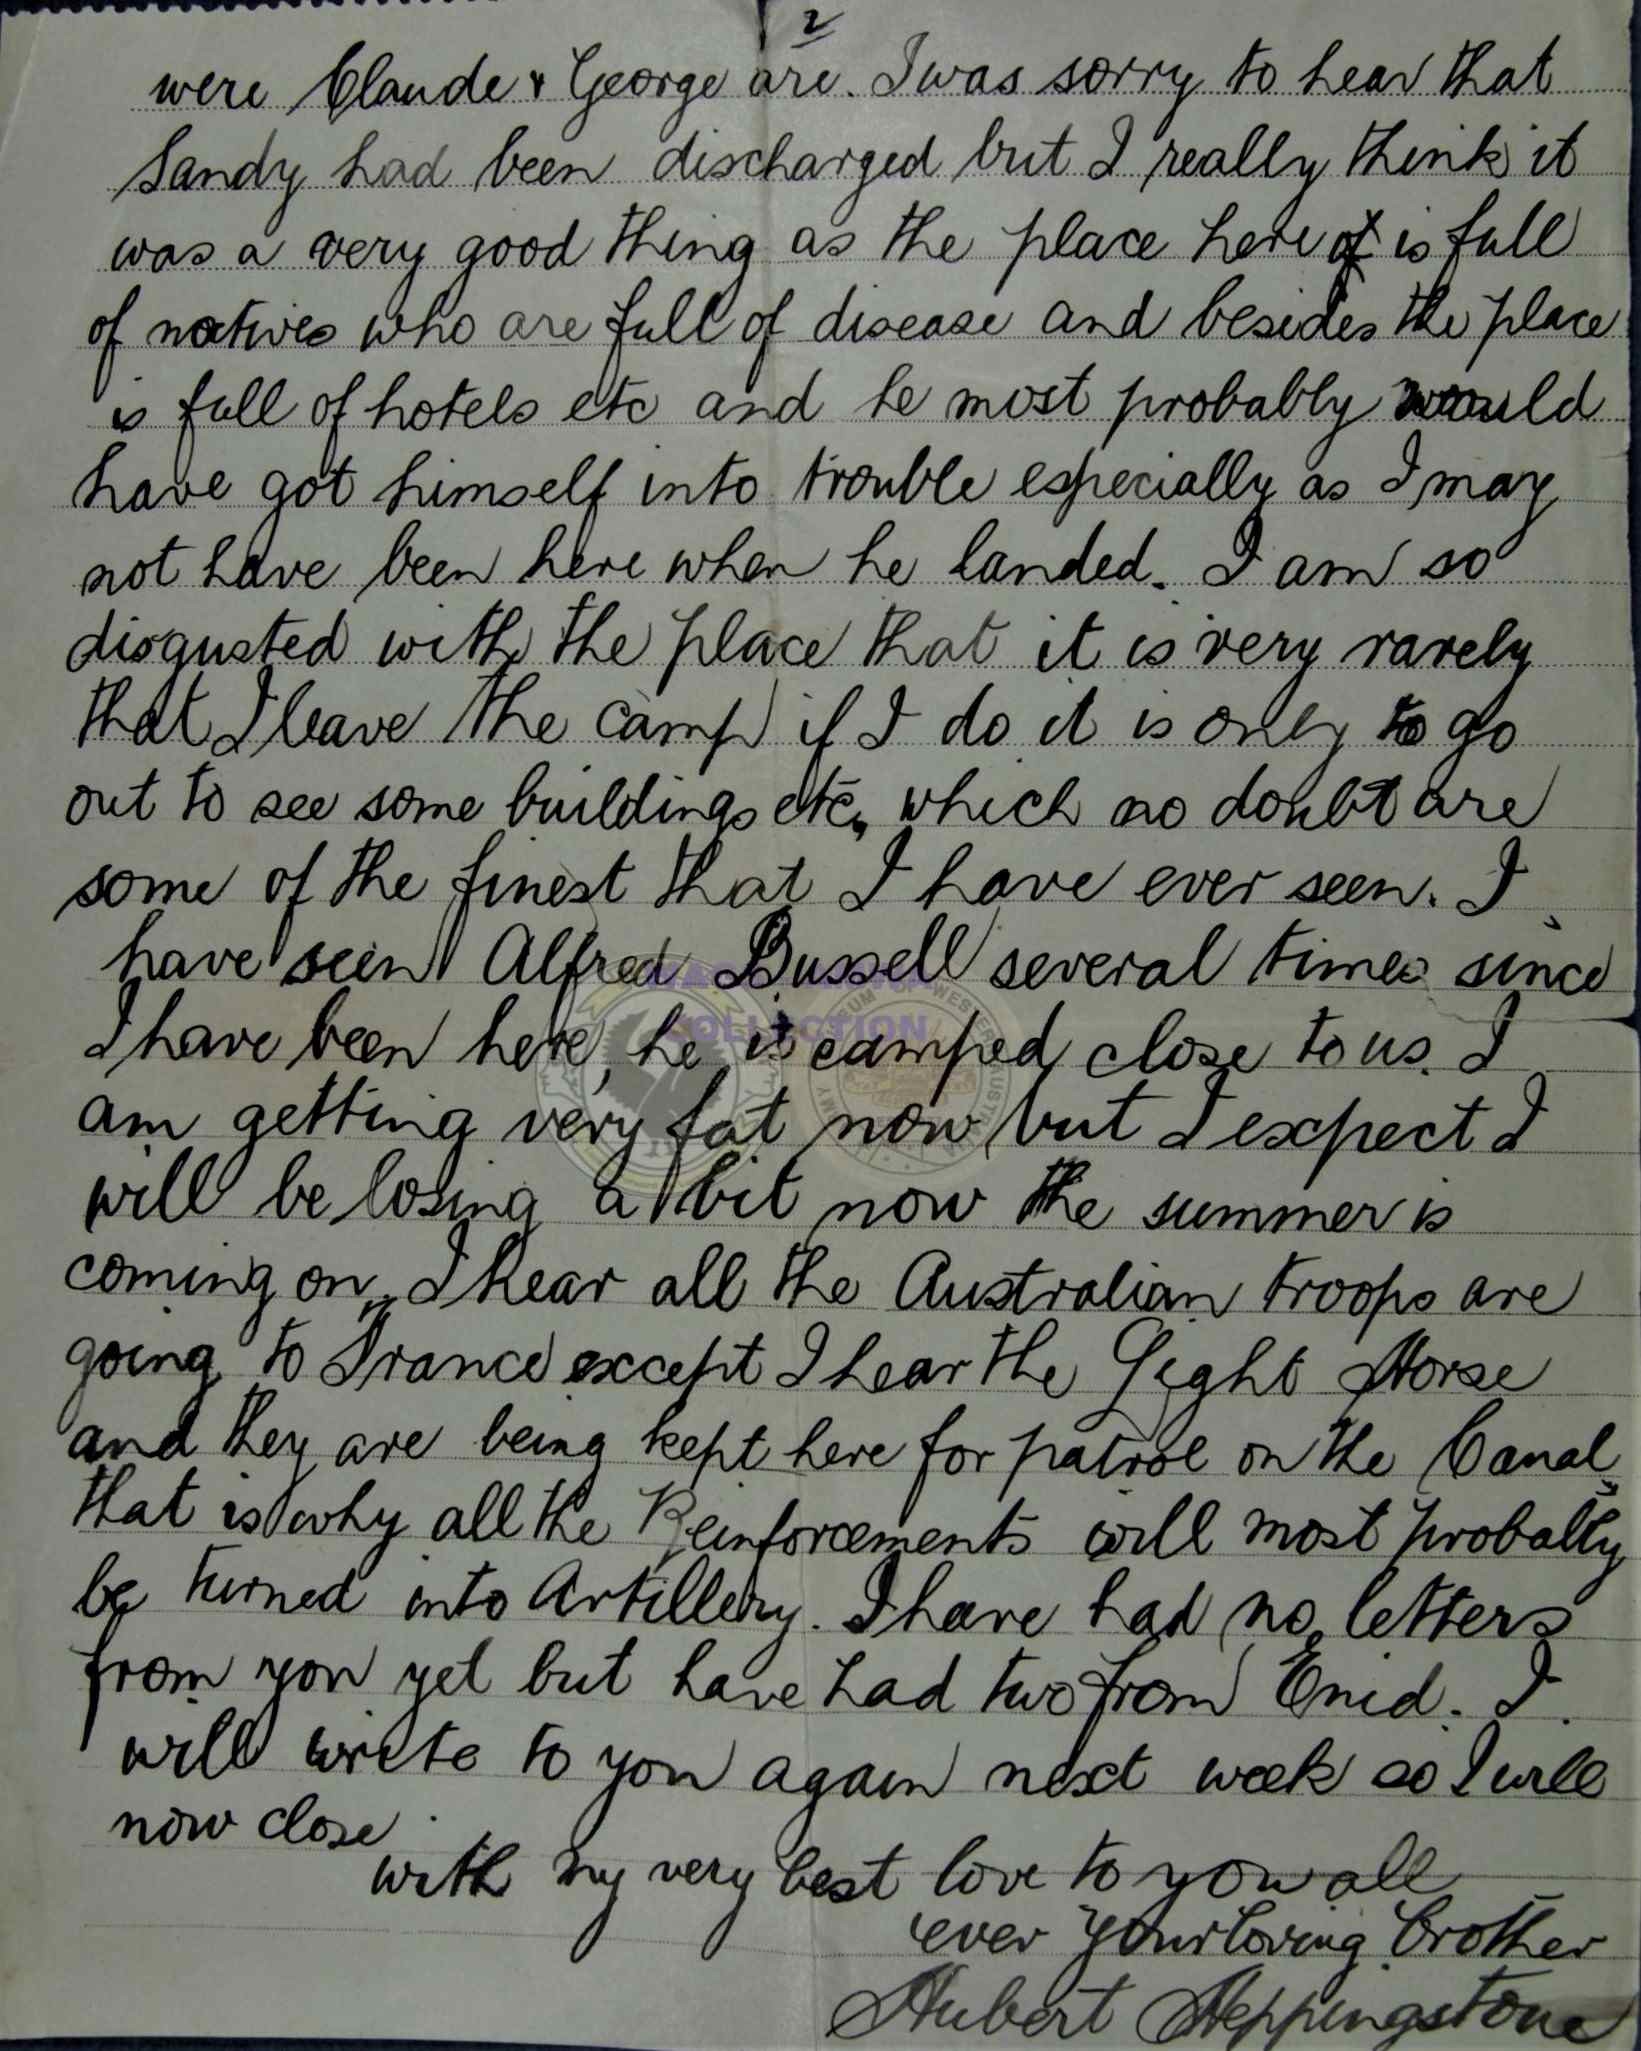 2
were Claude & George are. I was sorry to hear that
Sandy had been discharged but I really think it
was a very good thing as the place here is full
of natives who are full of disease and besides the place
is full of hotels etc and he most probably would
have got himself into trouble especially as I may
not have been here when he landed. I am so
disgusted with the place that it is very rarely
that I leave the camp if I do it is only to go
out to see some buildings etc, which no doubt are
some of the finest that I have ever seen. I
have seen Alfred Bussell several times since
I have been here, he is camped close to us. I
am getting very fat now but I expect I
will be losing a bit now the summer is
coming on. I hear all the Australian troops are
going to France except I hear the Light Horse
and they are being kept here for patrol on the Canal,
that is why all the Reinforcements will most probally
be turned into Artillery. I have had no letters
from you yet but have had two from Enid. I
will write to you again next week so I will
now close.
with my very best love to you all
ever your loving brother
Hubert Heppingstone
COLLECTION